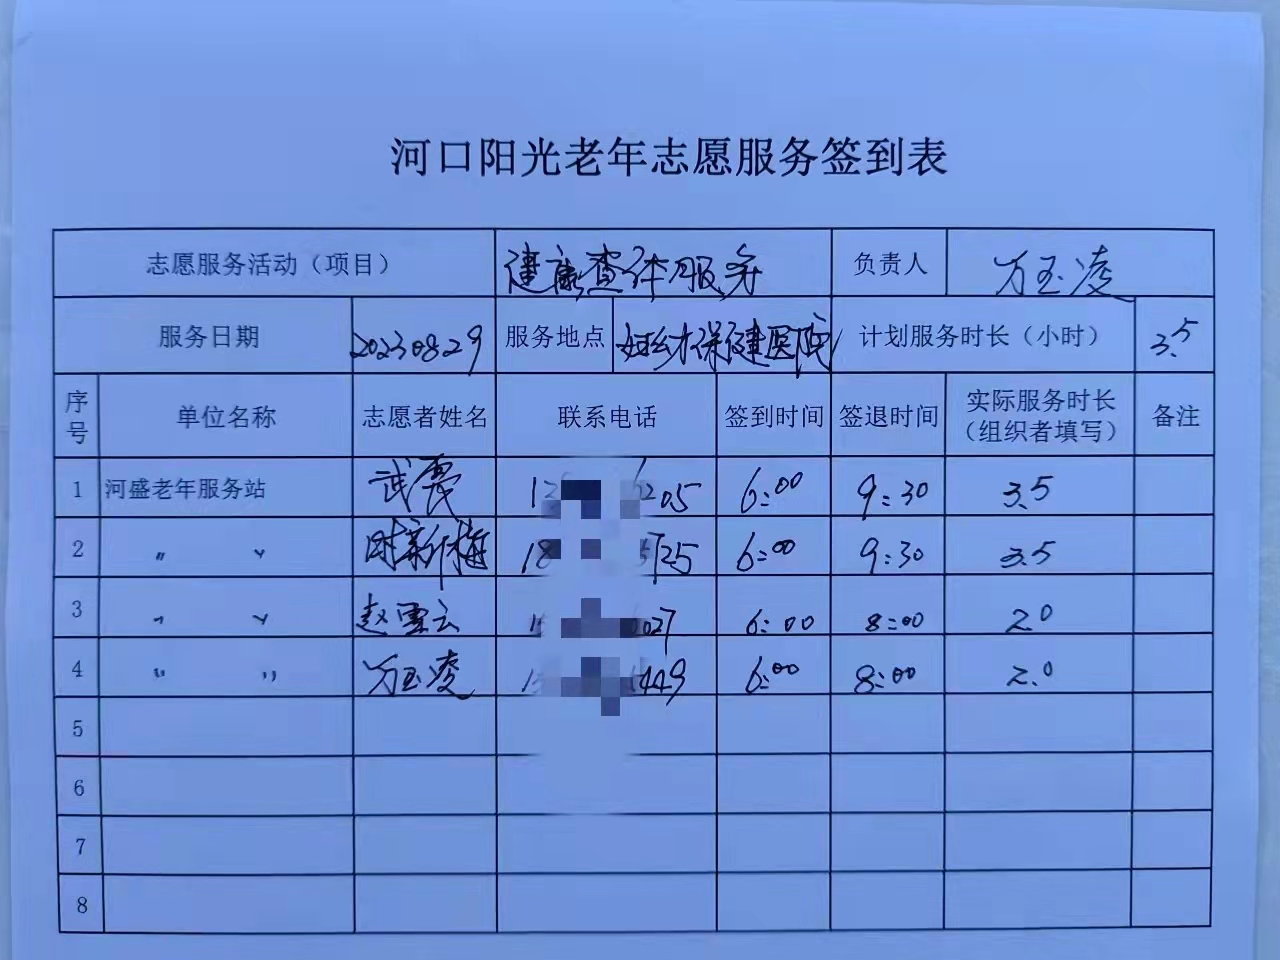 河口阳光老年志愿服务签到表
志愿服务活动（项目） 健康查体服务 负责人 万玉凌
服务日期 20230829 服务地点 妇幼保健医院 计划服务时长（小时） 3.5
序号 单位名称 志愿者姓名 联系电话 签到时间 签退时间 实际服务时长（组织者填写） 备注
1 河盛老年服务站 武霞 6:00 9:30 3.5
2 〃 〃 时新梅 6:00 9:30 3.5
3 〃 〃 赵雪云 6:00 8:00 2.0
4 〃 〃 万玉凌 6:00 8:00 2.0
5
6
7
8